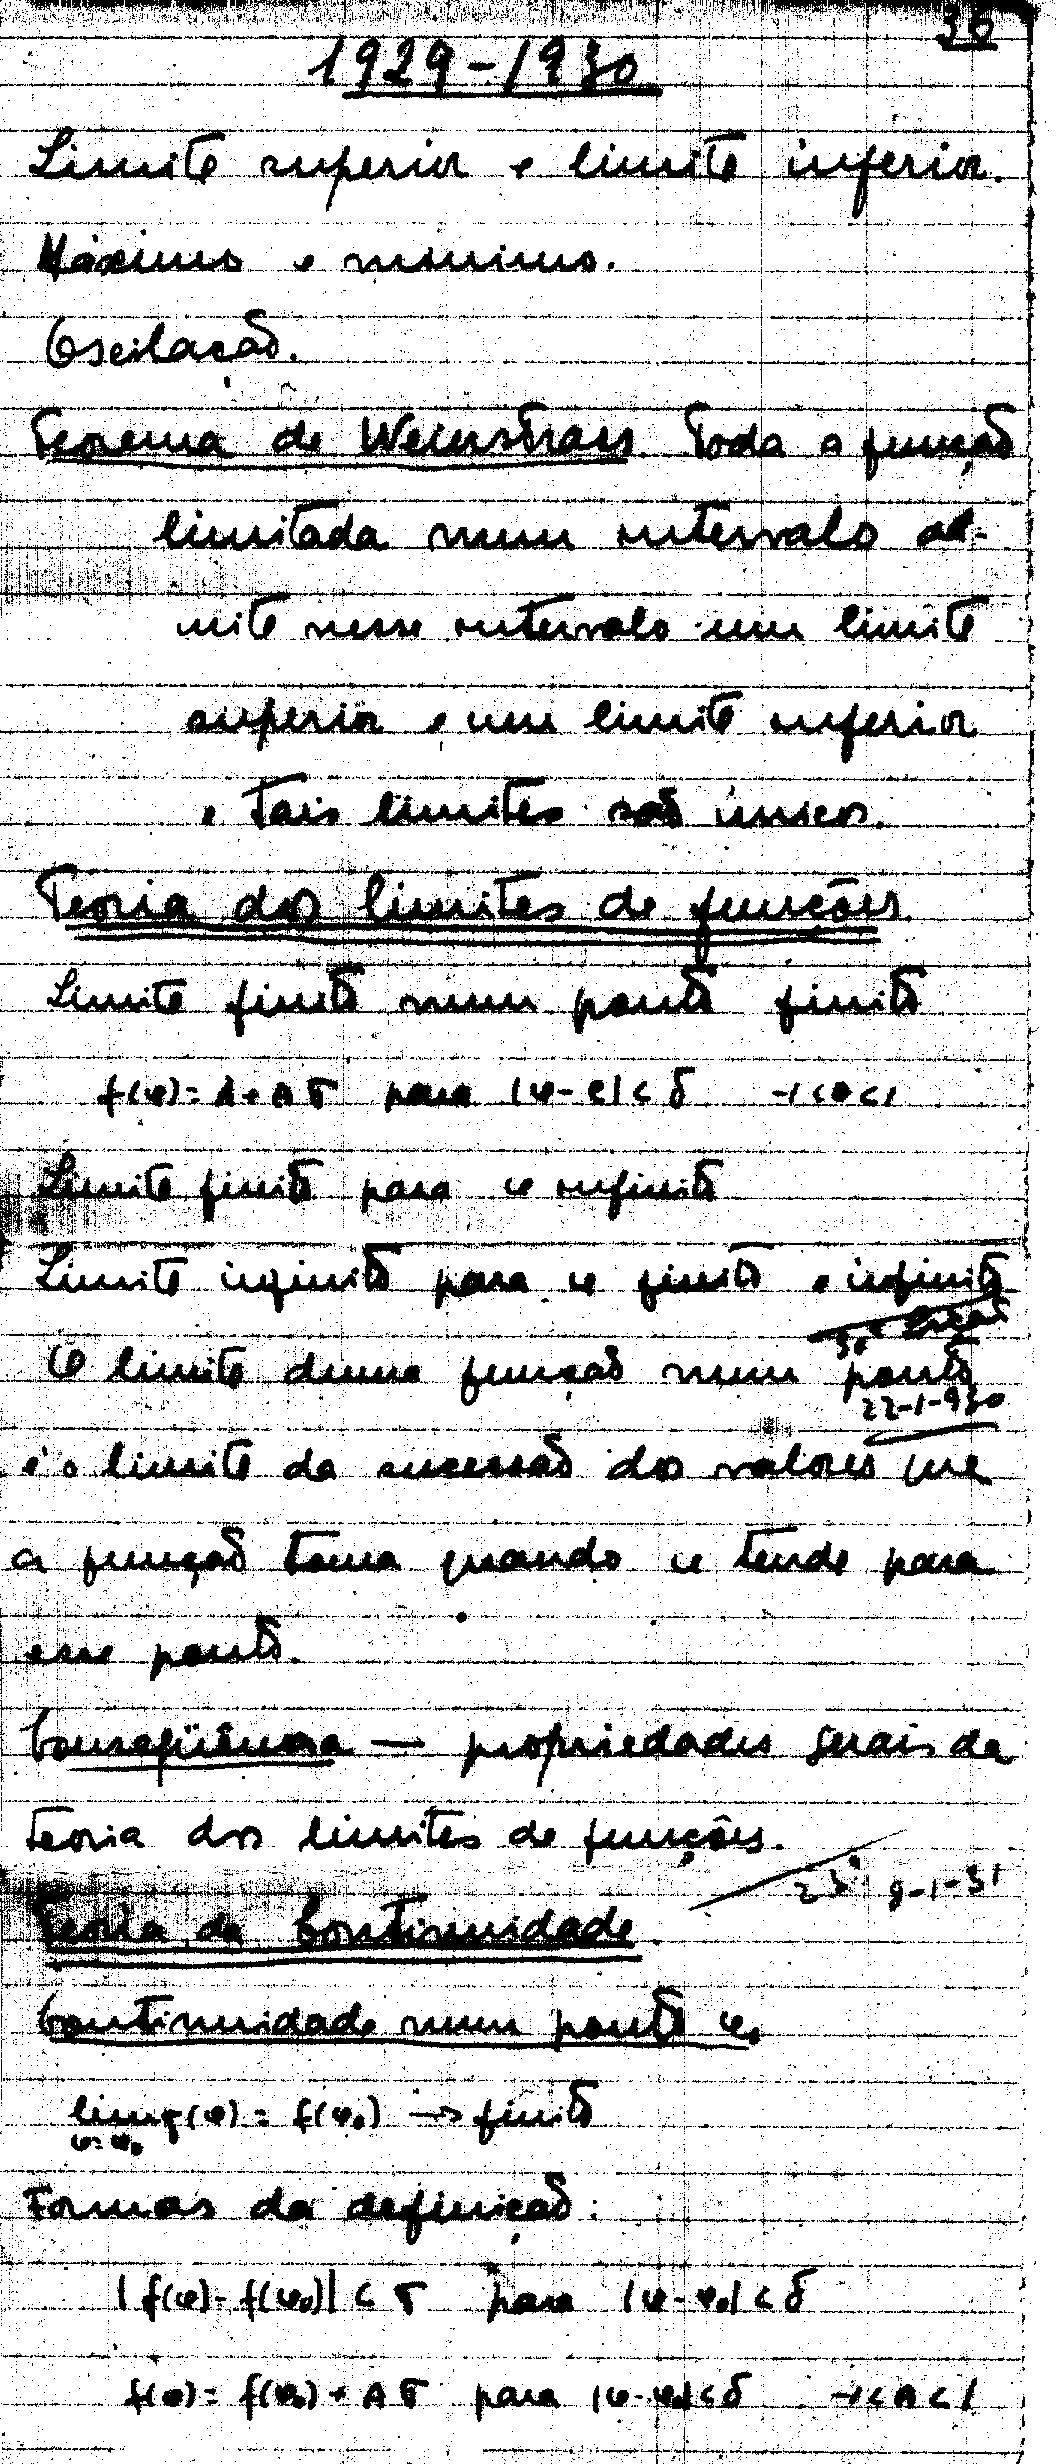 36
1929-1930
Limite superior e limite inferior.
Máximo e mínimo.
Oscilação.
Teorema de Weierstrass. Toda a função
limitada num intervalo ad-
mite nesse intervalo um limite
superior e um limite inferior
e tais limites são únicos.
Teoria dos limites de funções.
Limite finito num ponto finito
f(x) = A + θ σ para |x - c| < δ -1<θ<1
Limite finito para x infinito
Limite infinito para x finito e infinito
30ª lição
O limite duma função num ponto
22-1-930
é o limite da sucessão dos valores que
a função toma quando x tende para
esse ponto.
Conseqüência — propriedades gerais da
teoria dos limites de funções.
25ª 9-1-31
Teoria da Continuidade.
Continuidade num ponto x₀
lim f(x) = f(x₀) → finito
x=x₀
Formas da definição:
|f(x) - f(x₀)| < σ para |x - x₀| < δ
f(x) = f(x₀) + θ σ para |x - x₀| < δ -1<θ<1